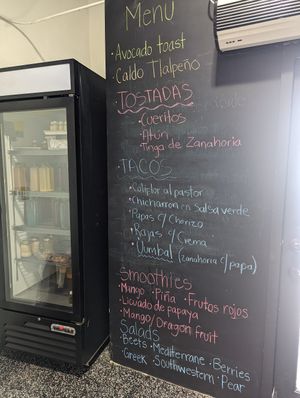 Menu
• Avocado toast
• Caldo Tlalpeño
TOSTADAS
• Cueritos
• Atún
• Tinga de Zanahoria
• TACOS
• Coliflor al pastor
• Chicharron en Salsa verde
• Papas c/ Chorizo
• Rajas c/ Crema
• Yumbal (zanahoria c/ papa)
Smoothies
• Mango • Piña • Frutos rojos
• Licuado de papaya
• Mango/Dragon fruit
Salads
• Beets • Mediterrane • Berries
• Greek • Southwestern • Pear